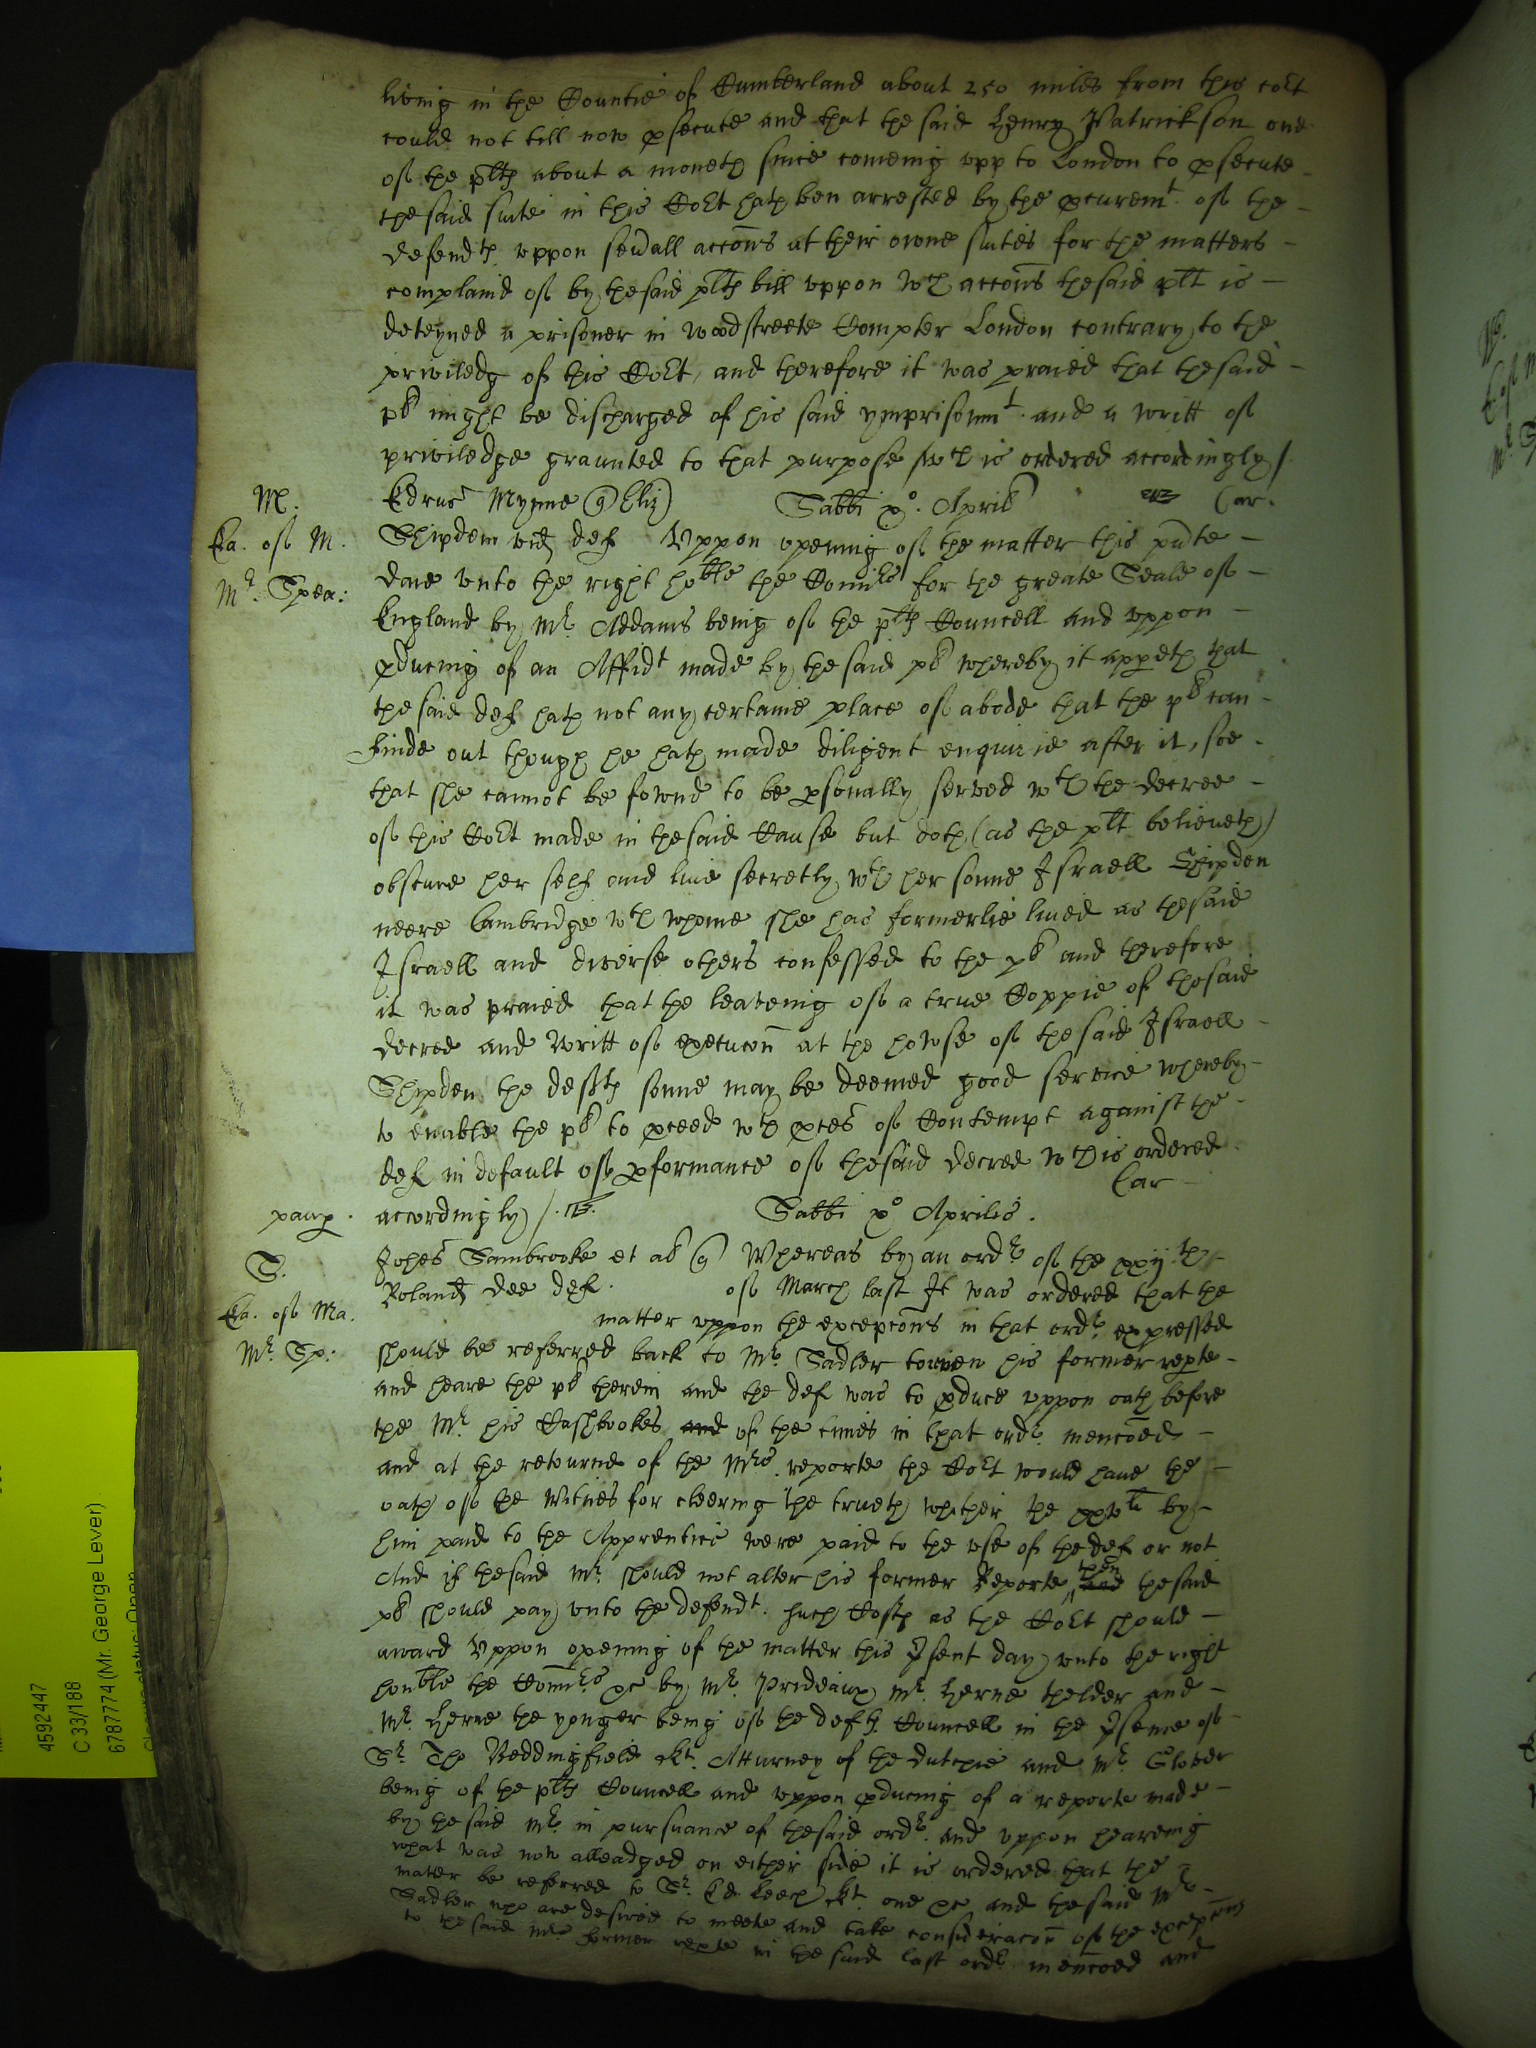 living in the Countie of Cumberland about 250 miles from this cort
could not till now psecute and that the said Henry Patrickson one
of the plts about a moneth since comeing vpp to London to psecute
the said suite in this Cort hath ben arrested by the pcuremt of the
defendts vppon seuall accons at their owne suites for the matters
complaind of by the said plts bill vppon wch accons the said plt is
deteyned a prisoner in woodstreete Compter London contrary to the
priviledg of this Cort, and therefore it was praied that the said
pl might be discharged of his said ymprisonmt and a writt of
priviledge graunted to that purpose wch is ordered accordingly /
M. Edrus Mynne q Eliz Sabbi po. April Car.
Ea. of M. Shipden vid def Vppon opening of the matter this pnte
Mr. Spea: daie vnto the right hoble the Comrs for the greate Seale of
England by Mr. Addams being of the plts Councell and vppon
pducing of an Affidt made by the said pl whereby it appeth that
the said def hath not any certaine place of abode that the pl can
finde out though he hath made diligent enquirie after it, soe
that she cannot be fownd to be psonally served wth the decree
of this Cort made in the said Cause but doth (as the plt believeth)
obscure her self and liue secretly wth her sonne Israell Shipden
neere Cambridge wth whome she has formerlie liued as the said
Israell and diverse others confessed to the pl and therefore
it was praied that the leaveing of a true Coppie of the said
decree and Writt of execucon at the howse of the said Israell
Shipden the defts sonne may be deemed good service whereby
to enable the pl to pceed wth pces of Contempt against the
def in default of pformance of the said decree wch is ordered
Car
paup. accordingly / Sabbi po Aprilis.
S. Johes Sambrooke et al q Whereas by an ordr of the xxijth
Roland Dee def. of March last It was ordered that the
Ea. of Ma. matter vppon the excepcons in that ordr expressed
Mr. Sp: should be referred back to Mr. Sadler to his former repte
and heare the pl therein and the def was to pduce vppon oath before
the Mr. his Cashbookes and of the times in that ordr. mencoed
and at the retourne of the Mrs. reporte the Cort would haue the
oath of the Witnes for cleering the trueth whither the xxvli by
him paid to the Apprentice were paid to the vse of the def or not
And if the said Mr. should not alter his former Reporte then the said
pl should pay vnto the defendt. such Costs as the Cort should
award Vppon opening of the matter this Psent day vnto the right
honble the Comrs &c by Mr. Prideaux Mr. Herne thelder and
Mr. Herne the yonger being of the defts Councell in the Psence of
Sr. Tho Beddingfield kt. Atturney of the dutchie and Mr. Glover
being of the plts Councell and vppon pducing of a reporte made
by the said Mr. in pursuance of the said ordr. and vppon heareing
what was now alleadged on either side it is ordered that the
mater be referred to Sr. Ed Leech kt. one &c and the said Mr.
Sadler who are desired to meete and take consideracon of the excepcons
to the said Mrs former repte in the said last ordr. mencoed and
4592447
C 33/188
6787774 (Mr. George Lever)